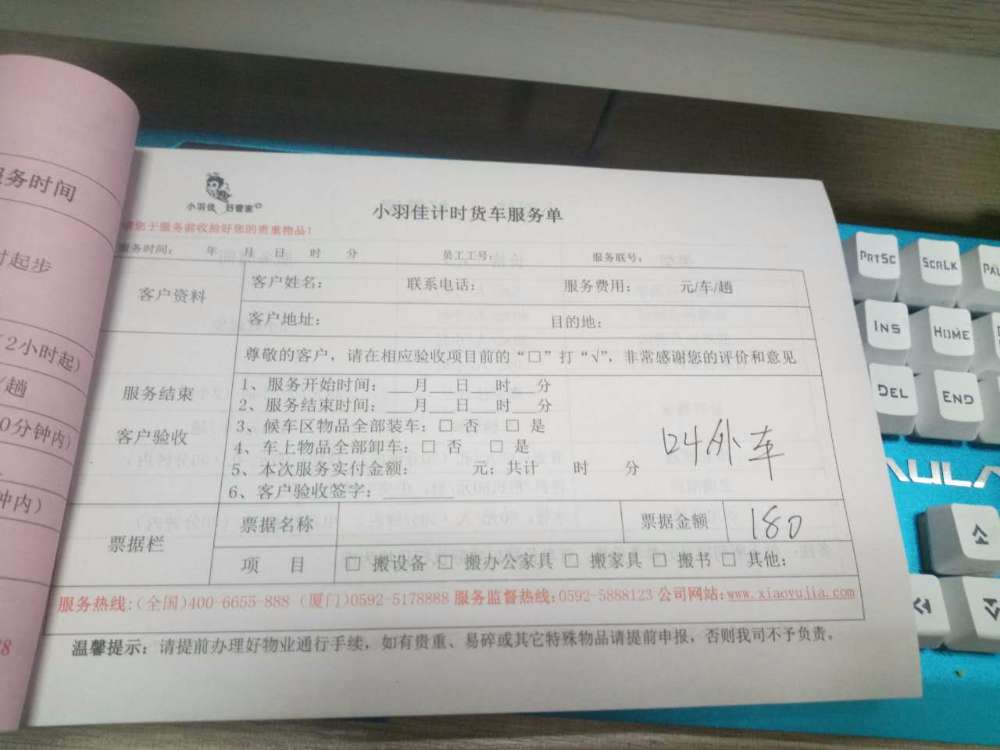 务时间
时起步
(2小时起)
/趟
0分钟内)
钟内)
28
小羽佳 好管家
小羽佳计时货车服务单
请您于服务前收捡好您的贵重物品！
服务时间： 年 月 日 时 分 员工工号： 服务联号：
客户资料
客户姓名： 联系电话： 服务费用： 元/车/趟
客户地址： 目的地：
服务结束
客户验收
尊敬的客户，请在相应验收项目前的“□”打“√”，非常感谢您的评价和意见
1、服务开始时间：___月___日___时___分
2、服务结束时间：___月___日___时___分
3、候车区物品全部装车：□ 否 □ 是
4、车上物品全部卸车：□ 否 □ 是
5、本次服务实付金额： 元；共计 时 分
6、客户验收签字：
外车
票据栏
票据名称
票据金额
180
项 目
□ 搬设备 □ 搬办公家具 □ 搬家具 □ 搬书 □ 其他:
服务热线:(全国)400-6655-888 (厦门)0592-5178888 服务监督热线:0592-5888123 公司网站:www.xiaoyujia.com
温馨提示：请提前办理好物业通行手续，如有贵重、易碎或其它特殊物品请提前申报，否则我司不予负责。
PRTSC
SCRLK
INS
HOME
DEL
END
AULA